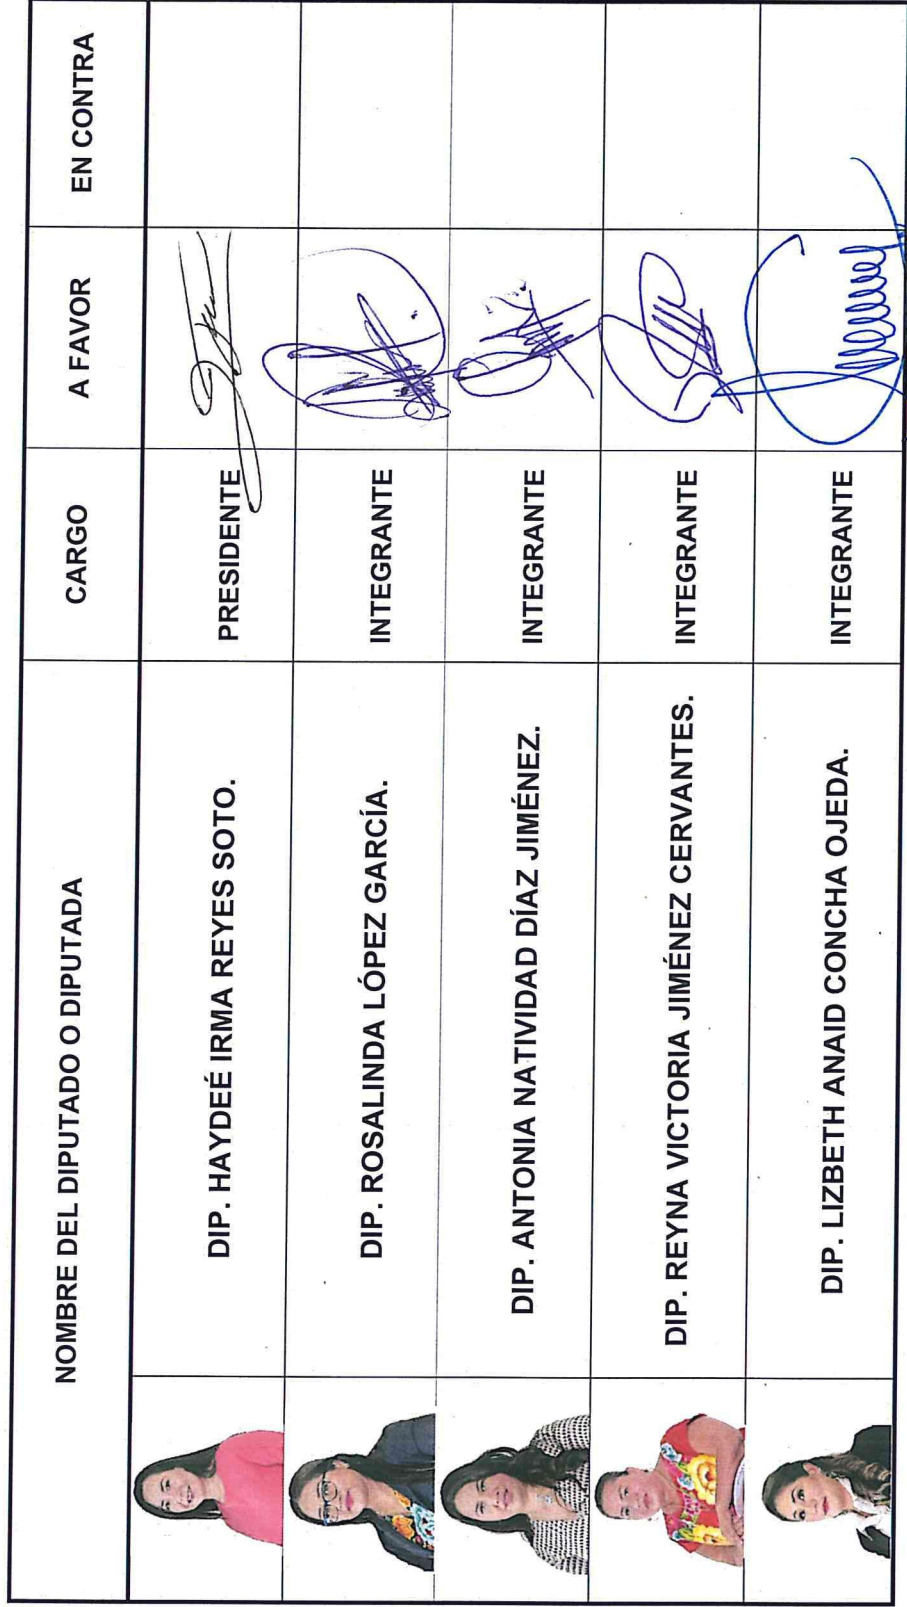 NOMBRE DEL DIPUTADO O DIPUTADA CARGO A FAVOR EN CONTRA
DIP. HAYDEÉ IRMA REYES SOTO. PRESIDENTE
DIP. ROSALINDA LÓPEZ GARCÍA. INTEGRANTE
DIP. ANTONIA NATIVIDAD DÍAZ JIMÉNEZ. INTEGRANTE
DIP. REYNA VICTORIA JIMÉNEZ CERVANTES. INTEGRANTE
DIP. LIZBETH ANAID CONCHA OJEDA. INTEGRANTE